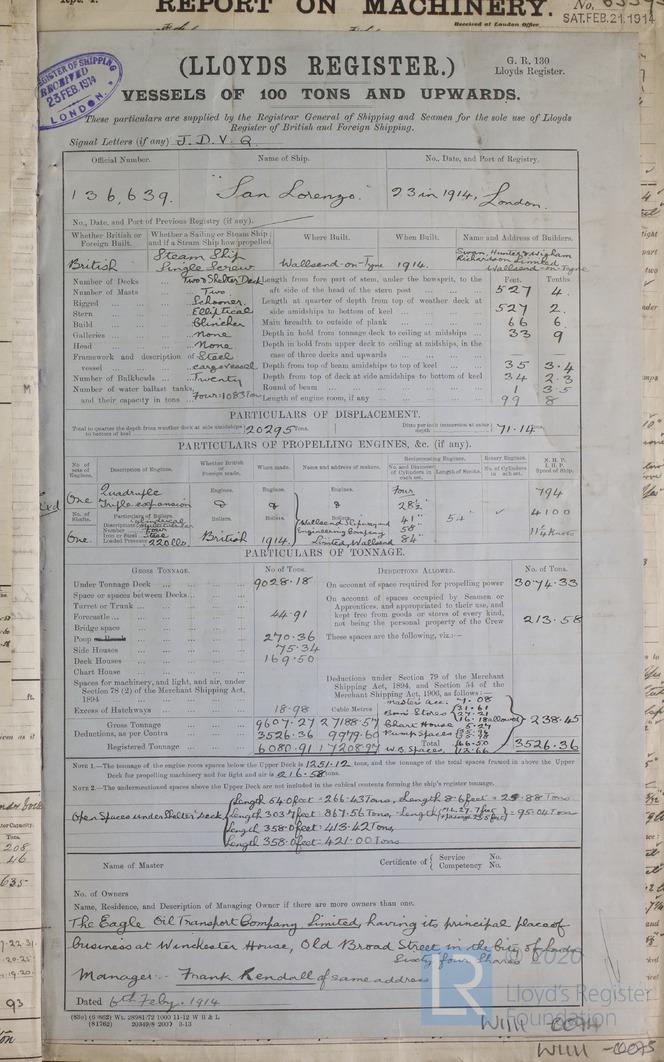 REPORT ON MACHINERY.
Received at London Office
SAT.FEB.21.1914
REGISTER OF SHIPPING
RECEIVED
23 FEB. 1914
LONDON.
(LLOYDS REGISTER.)
G. R. 130
Lloyds Register.
VESSELS OF 100 TONS AND UPWARDS.
These particulars are supplied by the Registrar General of Shipping and Seamen for the sole use of Lloyds
Register of British and Foreign Shipping.
Signal Letters (if any) J.D.V.Q.
Official Number. Name of Ship. No., Date, and Port of Registry.
136,639. "San Lorenzo." 23 in 1914, London.
No., Date, and Port of Previous Registry (if any).
Whether British or Foreign Built. Whether a Sailing or Steam Ship; and if a Steam Ship how propelled. Where Built. When Built. Name and Address of Builders.
British Steam Ship Single Screw Wallsend-on-Tyne 1914. Swan, Hunter & Wigham Richardson Limited Wallsend-on-Tyne
Feet. Tenths
Number of Decks ... Two & Shelter Deck Length from fore part of stem, under the bowsprit, to the
Number of Masts ... Two aft side of the head of the stern post 527 4.
Rigged ... Schooner. Length at quarter of depth from top of weather deck at
Stern ... Elliptical side amidships to bottom of keel 527 2.
Build ... Clincher Main breadth to outside of plank 66 6.
Galleries ... None Depth in hold from tonnage deck to ceiling at midships 33 9
Head ... None Depth in hold from upper deck to ceiling at midships, in the
Framework and description of Steel case of three decks and upwards
vessel ... cargo vessel Depth from top of beam amidships to top of keel 35 3.4
Number of Bulkheads ... Twenty Depth from top of deck at side amidships to bottom of keel 34 2.3
Number of water ballast tanks, Round of beam 1 3.5
and their capacity in tons ... Four: 1083 Tons Length of engine room, if any 99 8
PARTICULARS OF DISPLACEMENT.
Total to quarter the depth from weather deck at side amidships to bottom of keel 20295 Tons. Ditto per inch immersion at same depth 71.14 tons.
PARTICULARS OF PROPELLING ENGINES, &c. (if any).
No. of sets of Engines. Description of Engines. Whether British or Foreign made. When made. Name and address of makers. Reciprocating Engines. Rotary Engines. N. H. P. I. H. P. Speed of Ship.
No. and Diameter of Cylinders in each set. Length of Stroke. No. of Cylinders in each set.
One Quadruple Triple expansion Engines. Engines. Engines. Four 28½" 41" 58" 84" 54" 794
No. of Shafts. Particulars of Boilers. Boilers. Boilers. Boilers. 4100
Description Cylindrical
Number Four
Iron or Steel Steel
Loaded Pressure 220 lbs.
One. British 1914. Wallsend Slipway and Engineering Company Limited, Wallsend 11¼ Knots
PARTICULARS OF TONNAGE.
GROSS TONNAGE. No. of Tons. DEDUCTIONS ALLOWED. No. of Tons.
Under Tonnage Deck 9028.18 On account of space required for propelling power 3074.33
Space or spaces between Decks On account of spaces occupied by Seamen or
Turret or Trunk Apprentices, and appropriated to their use, and
Forecastle 44.91 kept free from goods or stores of every kind,
Bridge space not being the personal property of the Crew 213.58
Poop 270.36 These spaces are the following, viz.:—
Side Houses 75.34
Deck Houses 169.50
Chart House
Spaces for machinery, and light, and air, under Section 78 (2) of the Merchant Shipping Act, 1894 Deductions under Section 79 of the Merchant Shipping Act, 1894, and Section 54 of the Merchant Shipping Act, 1906, as follows:—
Master's acc. 7.08
Excess of Hatchways 18.98 Cubic Metres Bosn's Stores
Gross Tonnage 9607.27 27188.57 Chart House 5.27 238.45
Deductions, as per Contra 3526.36 9979.60 Pump Spaces
Total
Registered Tonnage 6080.91 17208.97 W.B. Spaces, 3526.36
NOTE 1.—The tonnage of the engine room spaces below the Upper Deck is 1251.12 tons, and the tonnage of the total spaces framed in above the Upper
Deck for propelling machinery and for light and air is 216.58 tons.
NOTE 2.—The undermentioned spaces above the Upper Deck are not included in the cubical contents forming the ship's register tonnage.
Open Spaces under Shelter Deck Length 54.0 feet = 266.43 Tons, Length 8.6 feet = 25.88 Tons
Length 303.7 feet: 867.56 Tons, Length = 95.04 Tons
Length 358.0 feet: 413.42 Tons,
Length 358.0 feet: 421.00 Tons
Name of Master Certificate of Service No. Competency No.
No. of Owners
Name, Residence, and Description of Managing Owner if there are more owners than one.
The Eagle Oil Transport Company Limited, having its principal place of
business at Winchester House, Old Broad Street in the City of London
Sixty four Shares
Manager:- Frank Kendall of same address
Dated 6th Feby. 1914
(81762) 20349/8 2000 3-13
LR © 2020
Lloyd's Register
Foundation
W1111-0074
W1111-0075